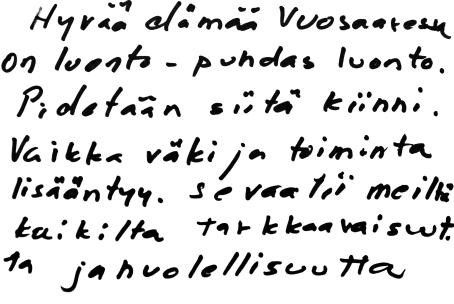 Hyvää elämää Vuosaaressa
on luonto - puhdas luonto.
Pidetään siitä kiinni.
Vaikka väki ja toiminta
lisääntyy. se vaatii meiltä
kaikilta tarkkaavaisuut.
ta ja huolellisuutta